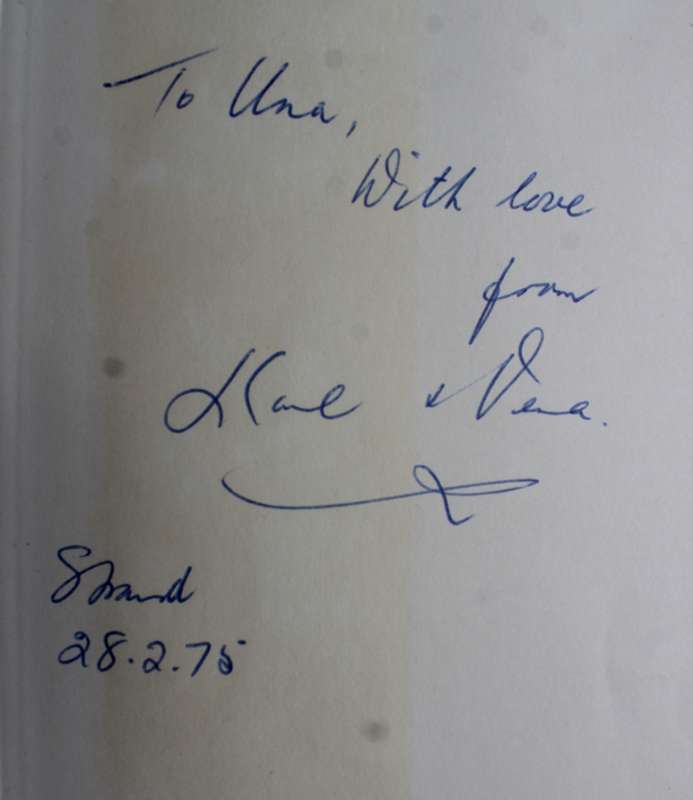 To Una,
With love
from
Karl & Vera.
Strand
28.2.75